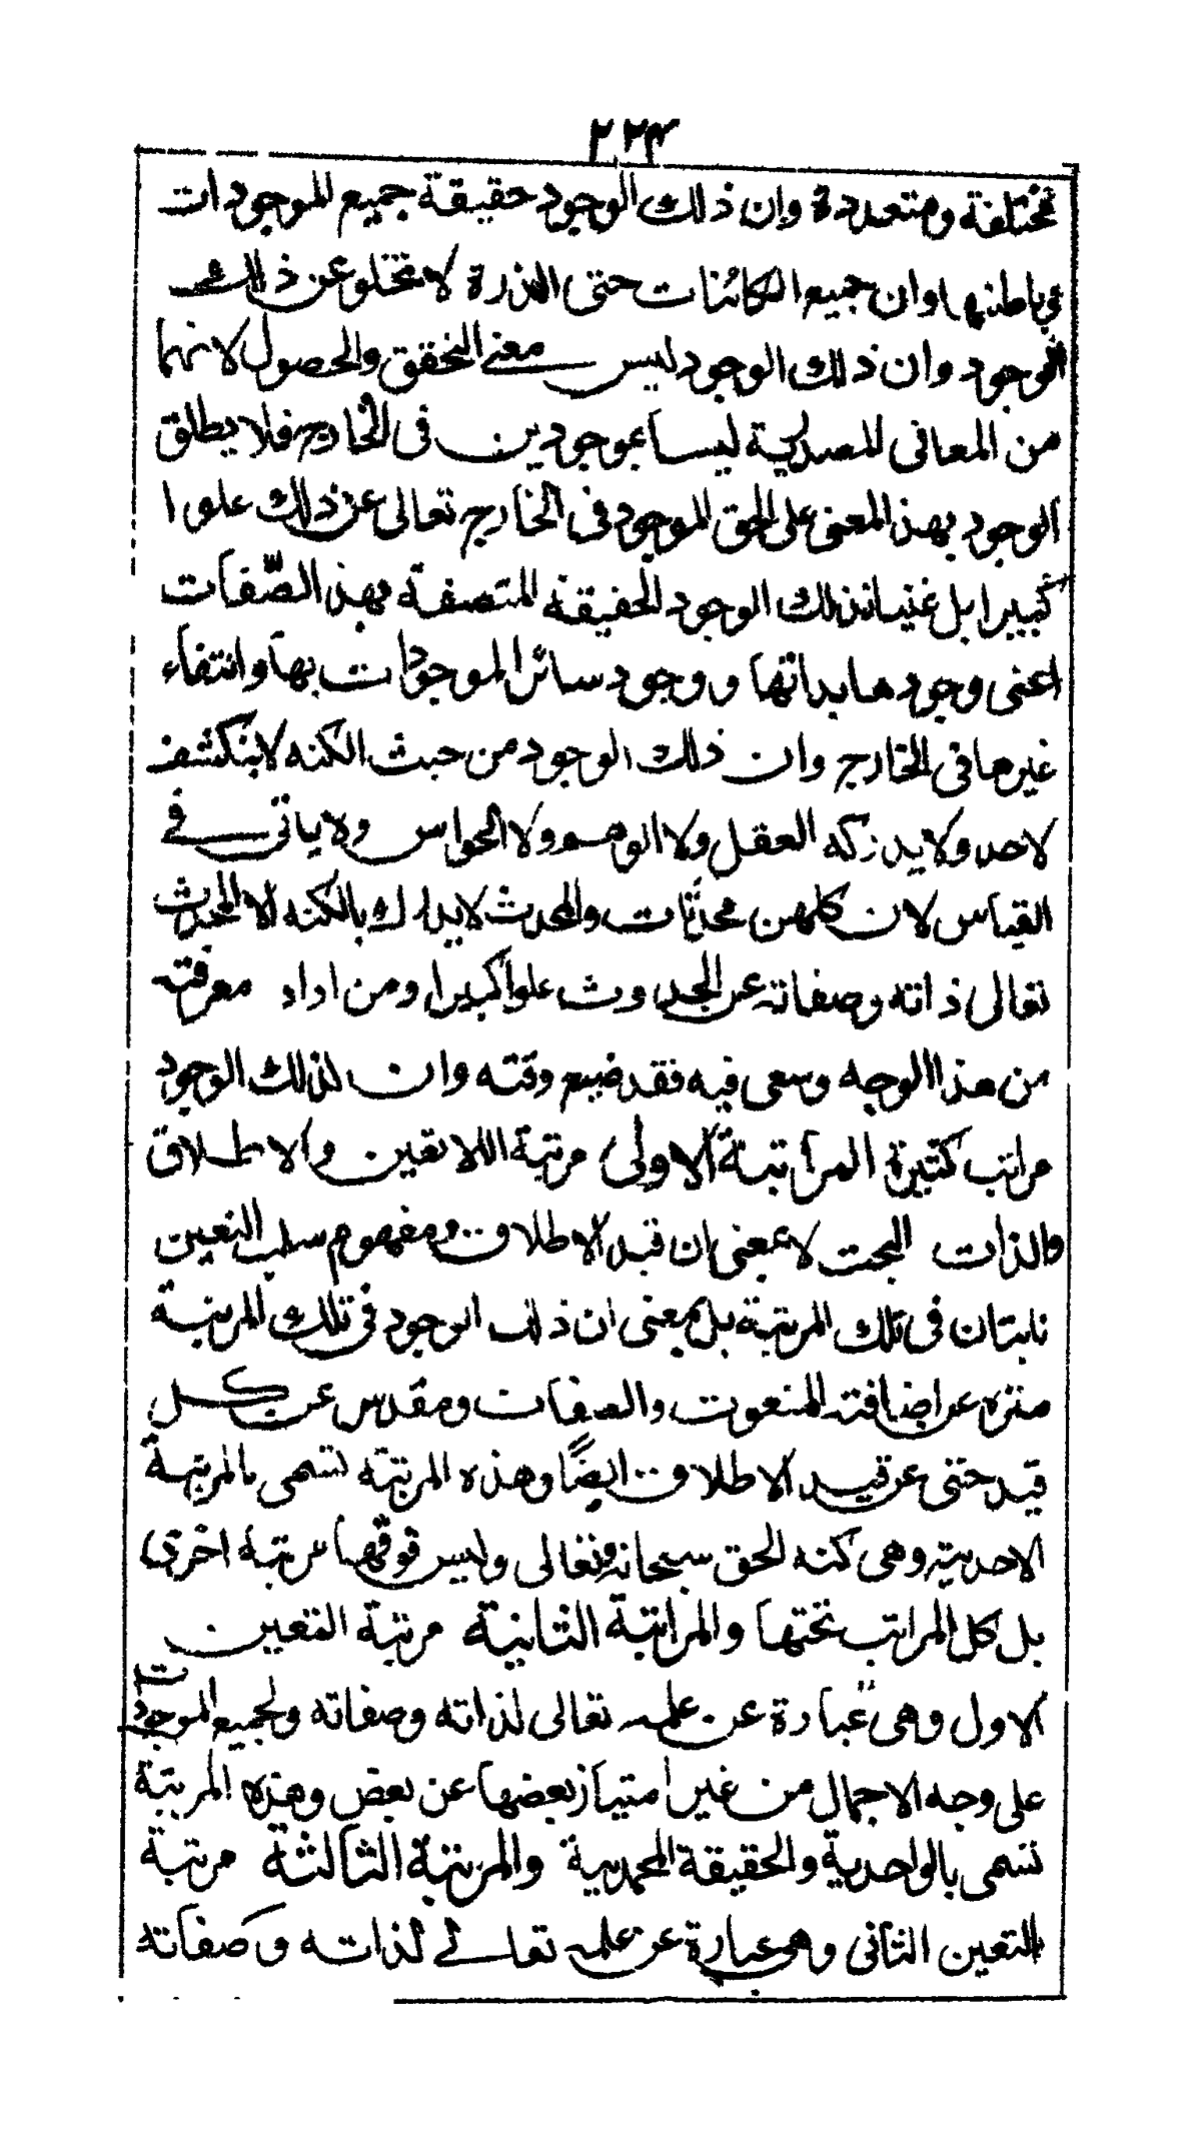 ٢٢٣
مختلفة ومتعددة وان ذلك الوجود حقيقة جميع الموجودات
فى باطنها وان جميع الكائنات حتى الذرة لا تخلو عن ذلك
الوجود وان ذلك الوجود ليس بمعنى التحقق والحصول لانهما
من المعانى المصدرية ليسا بموجودين فى الخارج فلا يطلق
الوجود بهذا المعنى على الحق الموجود فى الخارج تعالى عن ذلك علوا
كبيرا بل عنينا بذلك الوجود الحقيقة المتصفة بهذه الصّفات
اعنى وجودها بذاتها ووجود سائر الموجودات بها وانتفاء
غيرها فى الخارج وان ذلك الوجود من حيث الكنه لا ينكشف
لاحد ولا يدركه العقل ولا الوهم ولا الحواس ولا ياتى فى
القياس لان كلهن محدثات والمحدث لا يدرك بالكنه الا المحدث
تعالى ذاته وصفاته عن الحدوث علوا كبيرا ومن اراد معرفته
من هذا الوجه وسعى فيه فقد ضيع وقته وان لذلك الوجود
مراتب كثيرة المرتبة الاولى مرتبة اللاتعين والاطلاق
والذات البحت لا بمعنى ان قيد الاطلاق ومفهوم سلب التعين
ثابتان فى تلك المرتبة بل بمعنى ان ذلك الوجود فى تلك المرتبة
منزه عن اضافة المنعوت والصفات ومقدس عن كل
قيد حتى عن قيد الاطلاق ايضًا وهذه المرتبة تسمى بالمرتبة
الاحدية وهى كنه الحق سبحانه وتعالى وليس فوقها مرتبة اخرى
بل كل المراتب تحتها والمراتبة الثانية مرتبة التعين
الاول وهى عبارة عن علمه تعالى لذاته وصفاته ولجميع الموجودات
على وجه الاجمال من غير امتياز بعضها عن بعض وهذه المرتبة
تسمى بالواحدية والحقيقة المحمدية والمرتبة الثالثة مرتبة
التعين الثانى وهى عبارة عن علمه تعالى لذاته وصفاته